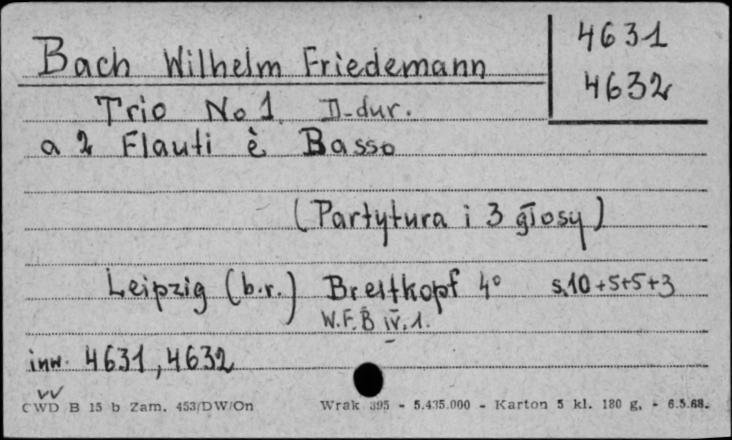 4631
4632
Bach Wilhelm Friedemann
Trio No 1. D-dur.
a 2 Flauti è Basso
(Partytura i 3 głosy)
Leipzig (b.r.) Breitkopf 4° s.10+5+5+3
W.F.B IV.1.
inw. 4631, 4632
CWD B 15 b Zam. 453/DW/On Wrak 395 - 5.435.000 - Karton 5 kl. 180 g. - 6.5.68.